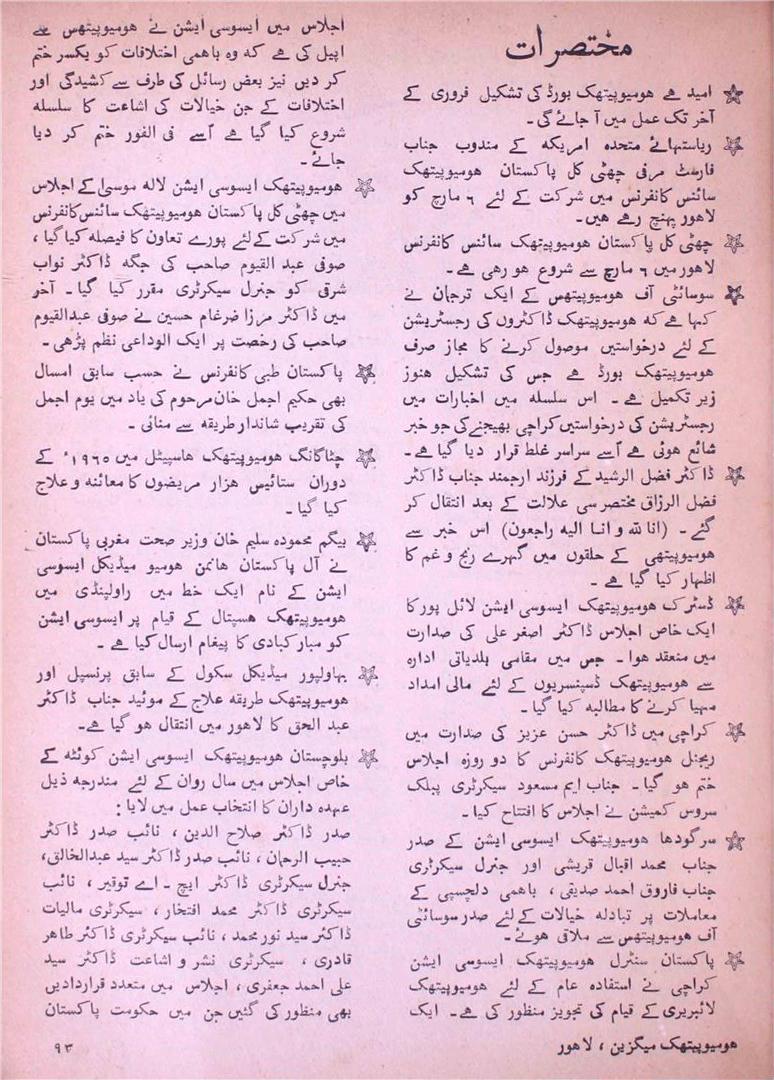 مختصرات
امید ہے ہومیوپیتھک بورڈ کی تشکیل فروری کے
آخر تک عمل میں آ جائے گی۔
ریاستہائے متحدہ امریکہ کے مندوب جناب
فارسٹ مرفی چھٹی کل پاکستان ہومیوپیتھک
سائنس کانفرنس میں شرکت کے لئے ٦ مارچ کو
لاہور پہنچ رہے ہیں۔
چھٹی کل پاکستان ہومیوپیتھک سائنس کانفرنس
لاہور میں ٦ مارچ سے شروع ہو رہی ہے۔
سوسائٹی آف ہومیوپیتھس کے ایک ترجمان نے
کہا ہے کہ ہومیوپیتھک ڈاکٹروں کی رجسٹریشن
کے لئے درخواستیں موصول کرنے کا مجاز صرف
ہومیوپیتھک بورڈ ہے جس کی تشکیل ہنوز
زیر تکمیل ہے۔ اس سلسلہ میں اخبارات میں
رجسٹریشن کی درخواستیں کراچی بھیجنے کی جو خبر
شائع ہوئی ہے اسے سراسر غلط قرار دیا گیا ہے۔
ڈاکٹر فضل الرشید کے فرزند ارجمند جناب ڈاکٹر
فضل الرزاق مختصر سی علالت کے بعد انتقال کر
گئے۔ (انا للہ و انا الیہ راجعون) اس خبر سے
ہومیوپیتھی کے حلقوں میں گہرے رنج و غم کا
اظہار کیا گیا ہے۔
ڈسٹرک ہومیوپیتھک ایسوسی ایشن لائل پور کا
ایک خاص اجلاس ڈاکٹر اصغر علی کی صدارت
میں منعقد ہوا۔ جس میں مقامی بلدیاتی ادارہ
سے ہومیوپیتھک ڈسپنسریوں کے لئے مالی امداد
مہیا کرنے کا مطالبہ کیا گیا۔
کراچی میں ڈاکٹر حسن عزیز کی صدارت میں
ریجنل ہومیوپیتھک کانفرنس کا دو روزہ اجلاس
ختم ہو گیا۔ جناب ایم مسعود سیکرٹری پبلک
سروس کمیشن نے اجلاس کا افتتاح کیا۔
سرگودھا ہومیوپیتھک ایسوسی ایشن کے صدر
جناب محمد اقبال قریشی اور جنرل سیکرٹری
جناب فاروق احمد صدیقی، باہمی دلچسپی کے
معاملات پر تبادلہ خیالات کے لئے صدر سوسائٹی
آف ہومیوپیتھس سے ملاقی ہوئے۔
پاکستان سنٹرل ہومیوپیتھک ایسوسی ایشن
کراچی نے استفادہ عام کے لئے ہومیوپیتھک
لائبریری کے قیام کی تجویز منظور کی ہے۔ ایک
اجلاس میں ایسوسی ایشن نے ہومیوپیتھس سے
اپیل کی ہے کہ وہ باہمی اختلافات کو یکسر ختم
کر دیں نیز بعض رسائل کی طرف سے کشیدگی اور
اختلافات کے جن خیالات کی اشاعت کا سلسلہ
شروع کیا گیا ہے اسے فی الفور ختم کر دیا
جائے۔
ہومیوپیتھک ایسوسی ایشن لالہ موسیٰ کے اجلاس
میں چھٹی کل پاکستان ہومیوپیتھک سائنس کانفرنس
میں شرکت کے لئے پورے تعاون کا فیصلہ کیا گیا،
صوفی عبد القیوم صاحب کی جگہ ڈاکٹر نواب
شرقی کو جنرل سیکرٹری مقرر کیا گیا۔ آخر
میں ڈاکٹر مرزا ضرغام حسین نے صوفی عبدالقیوم
صاحب کی رخصت پر ایک الوداعی نظم پڑھی۔
پاکستان طبی کانفرنس نے حسب سابق امسال
بھی حکیم اجمل خان مرحوم کی یاد میں یوم اجمل
کی تقریب شاندار طریقہ سے منائی۔
چٹاگانگ ہومیوپیتھک ہاسپیٹل میں ١٩٦٥ء کے
دوران ستائیس ہزار مریضوں کا معائنہ و علاج
کیا گیا۔
بیگم محمودہ سلیم خان وزیر صحت مغربی پاکستان
نے آل پاکستان ہانمن ہومیو میڈیکل ایسوسی
ایشن کے نام ایک خط میں راولپنڈی میں
ہومیوپیتھک ہسپتال کے قیام پر ایسوسی ایشن
کو مبارکبادی کا پیغام ارسال کیا ہے۔
بہاولپور میڈیکل سکول کے سابق پرنسپل اور
ہومیوپیتھک طریقہ علاج کے موئید جناب ڈاکٹر
عبد الحق کا لاہور میں انتقال ہو گیا ہے۔
بلوچستان ہومیوپیتھک ایسوسی ایشن کوئٹہ کے
خاص اجلاس میں سال رواں کے لئے مندرجہ ذیل
عہدہ داران کا انتخاب عمل میں لایا:
صدر ڈاکٹر صلاح الدین، نائب صدر ڈاکٹر
حبیب الرحمان، نائب صدر ڈاکٹر سید عبدالخالق،
جنرل سیکرٹری ڈاکٹر ایچ۔ اے توقیر، نائب
سیکرٹری ڈاکٹر محمد افتخار، سیکرٹری مالیات
ڈاکٹر سید نور محمد، نائب سیکرٹری ڈاکٹر طاہر
قادری، سیکرٹری نشر و اشاعت ڈاکٹر سید
علی احمد جعفری، اجلاس میں متعدد قراردادیں
بھی منظور کی گئیں جن میں حکومت پاکستان
ہومیوپیتھک میگزین، لاہور
٩٣